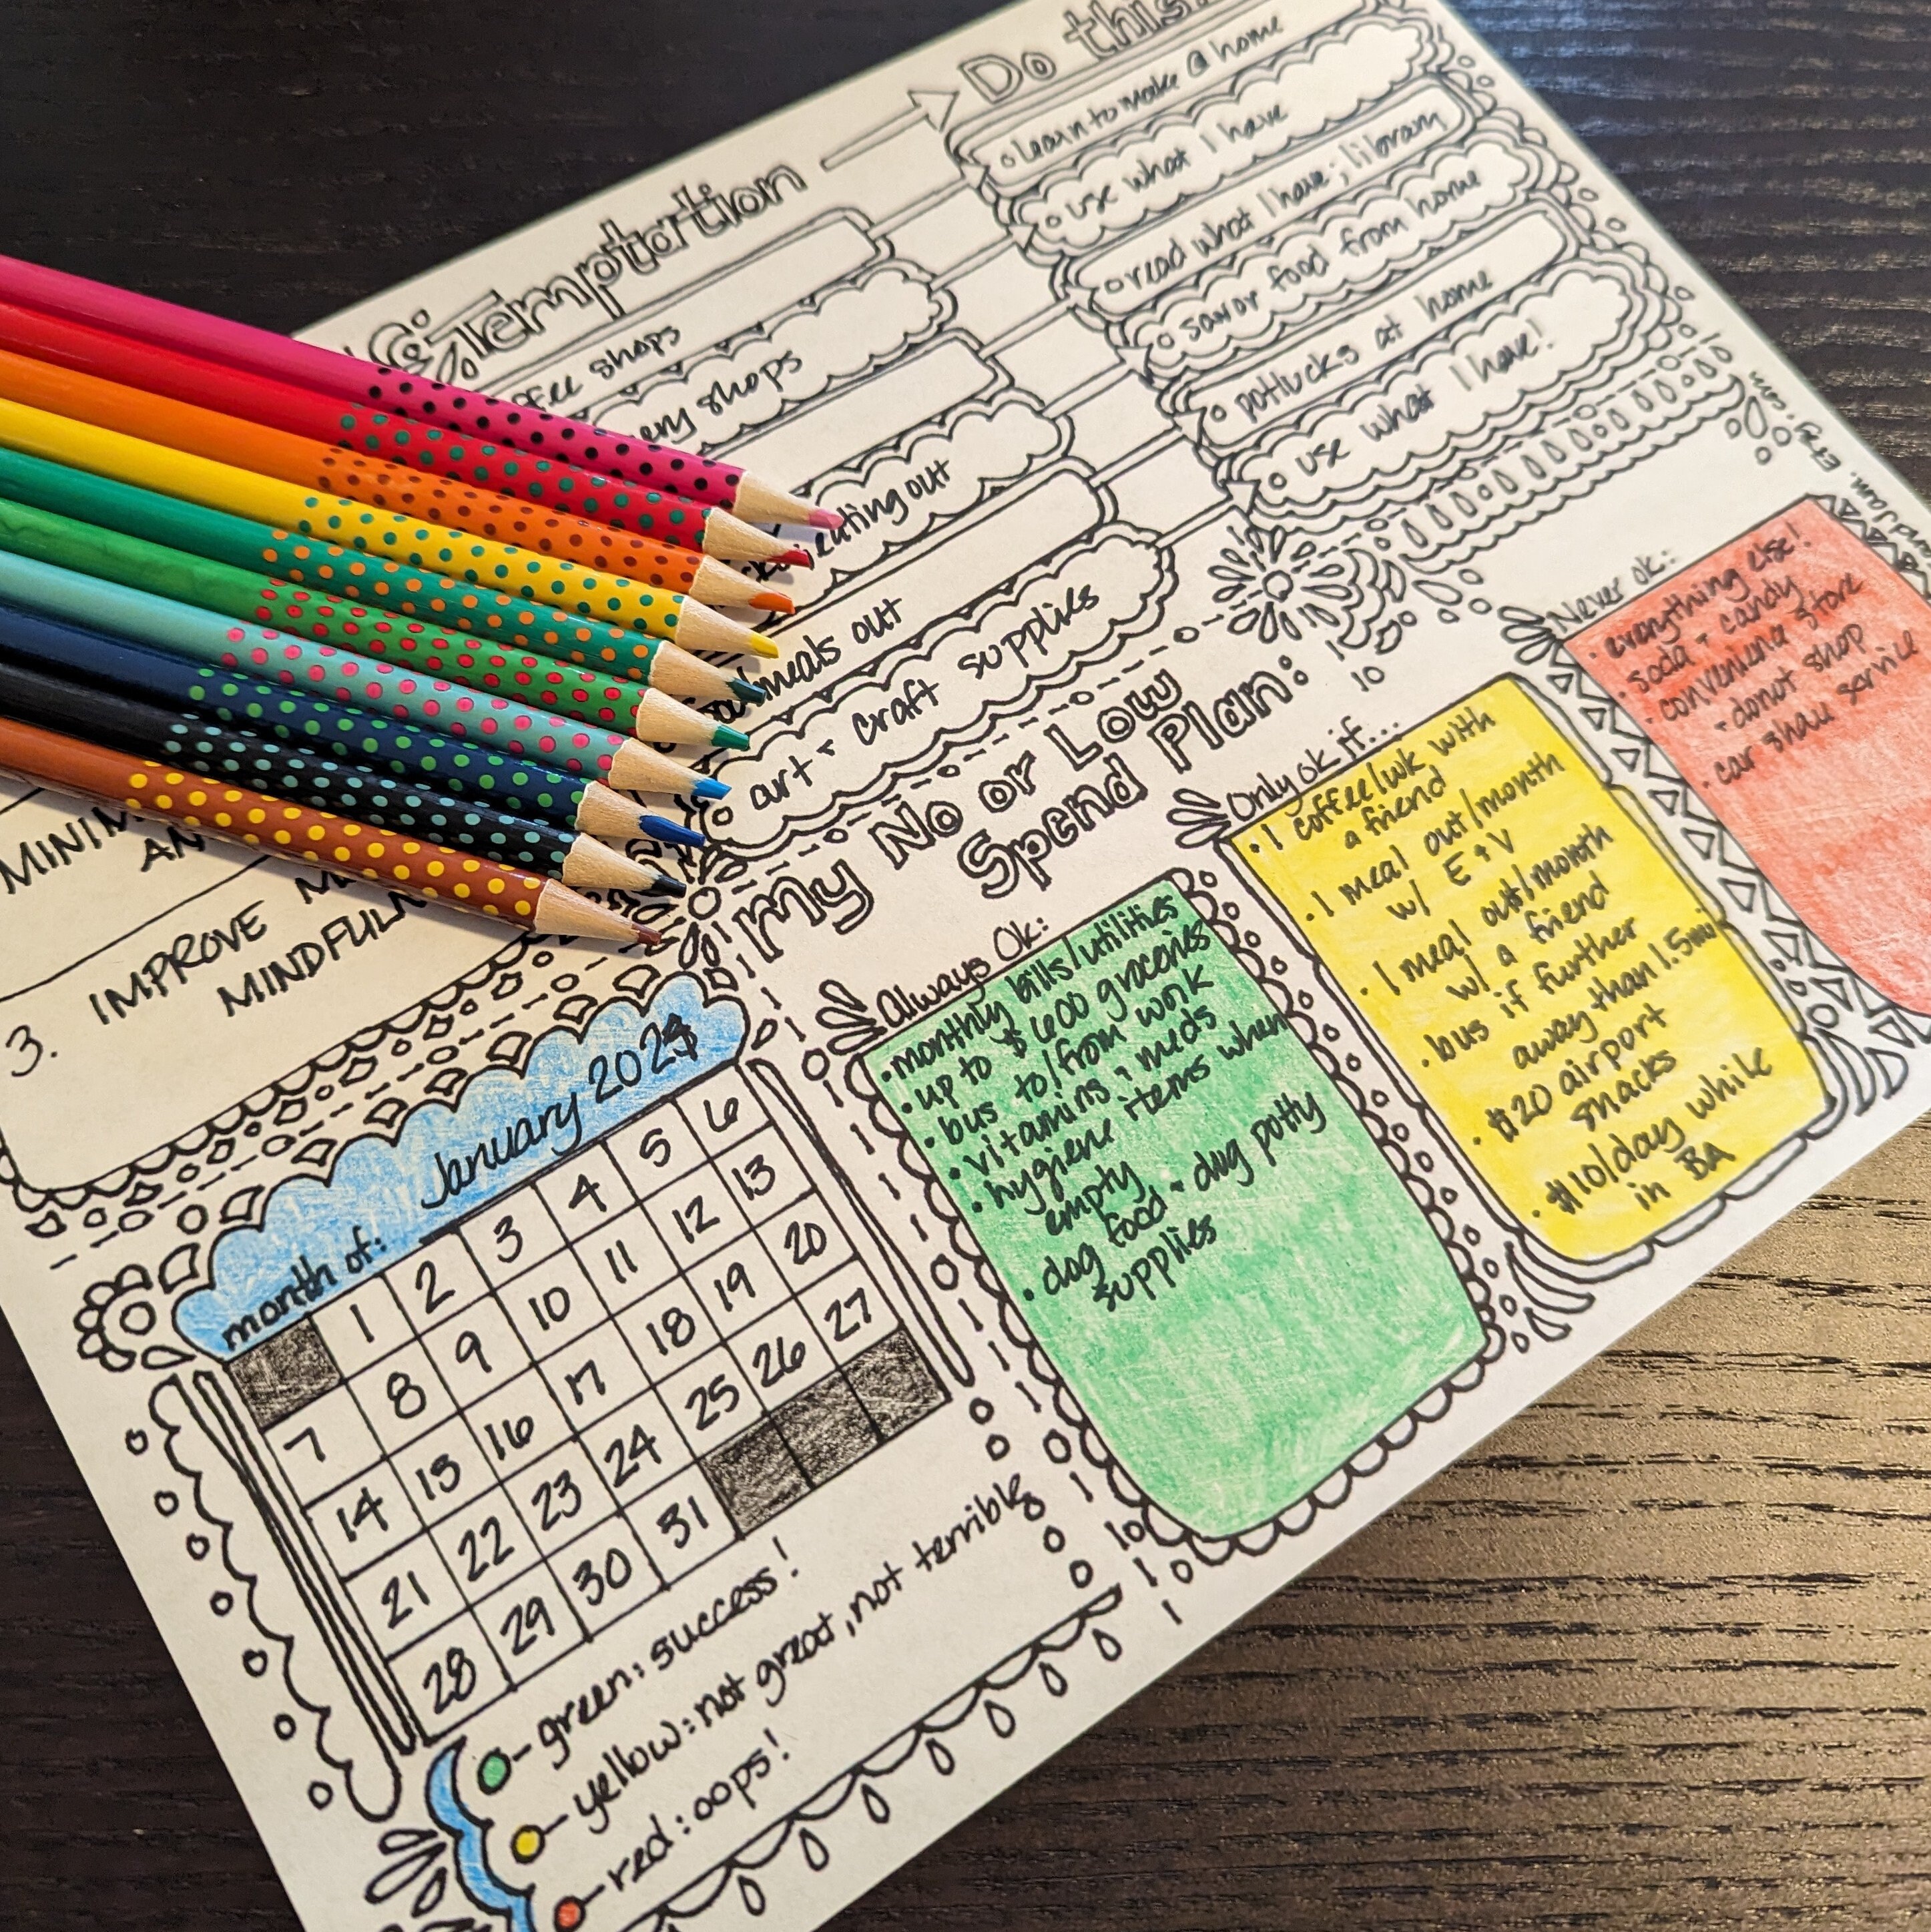 Temptation
Do this
shops
shops
eating out
meals out
art + craft supplies
• learn to make @ home
• use what I have
• read what I have; library
• savor food from home
• potlucks at home
• use what I have!
AN
3. IMPROVE
My No or Low
Spend Plan:
Always Ok:
• monthly bills/utilities
• up to $600 groceries
• bus to/from work
• vitamins + meds
• hygiene items when
empty
• dog food + dog potty
supplies
Only ok if...
• 1 coffee/wk with
a friend
• 1 meal out/month
w/ E + V
• 1 meal out/month
w/ a friend
• bus if further
away than 1.5mi
• $20 airport
snacks
• $10/day while
in BA
Never ok:
• everything else!
• soda + candy
• convenience store
+ donut shop
• car share service
month of: January 202$
1 2 3 4 5 6
7 8 9 10 11 12 13
14 15 16 17 18 19 20
21 22 23 24 25 26 27
28 29 30 31
green: success!
yellow: not great, not terrible
red: oops!